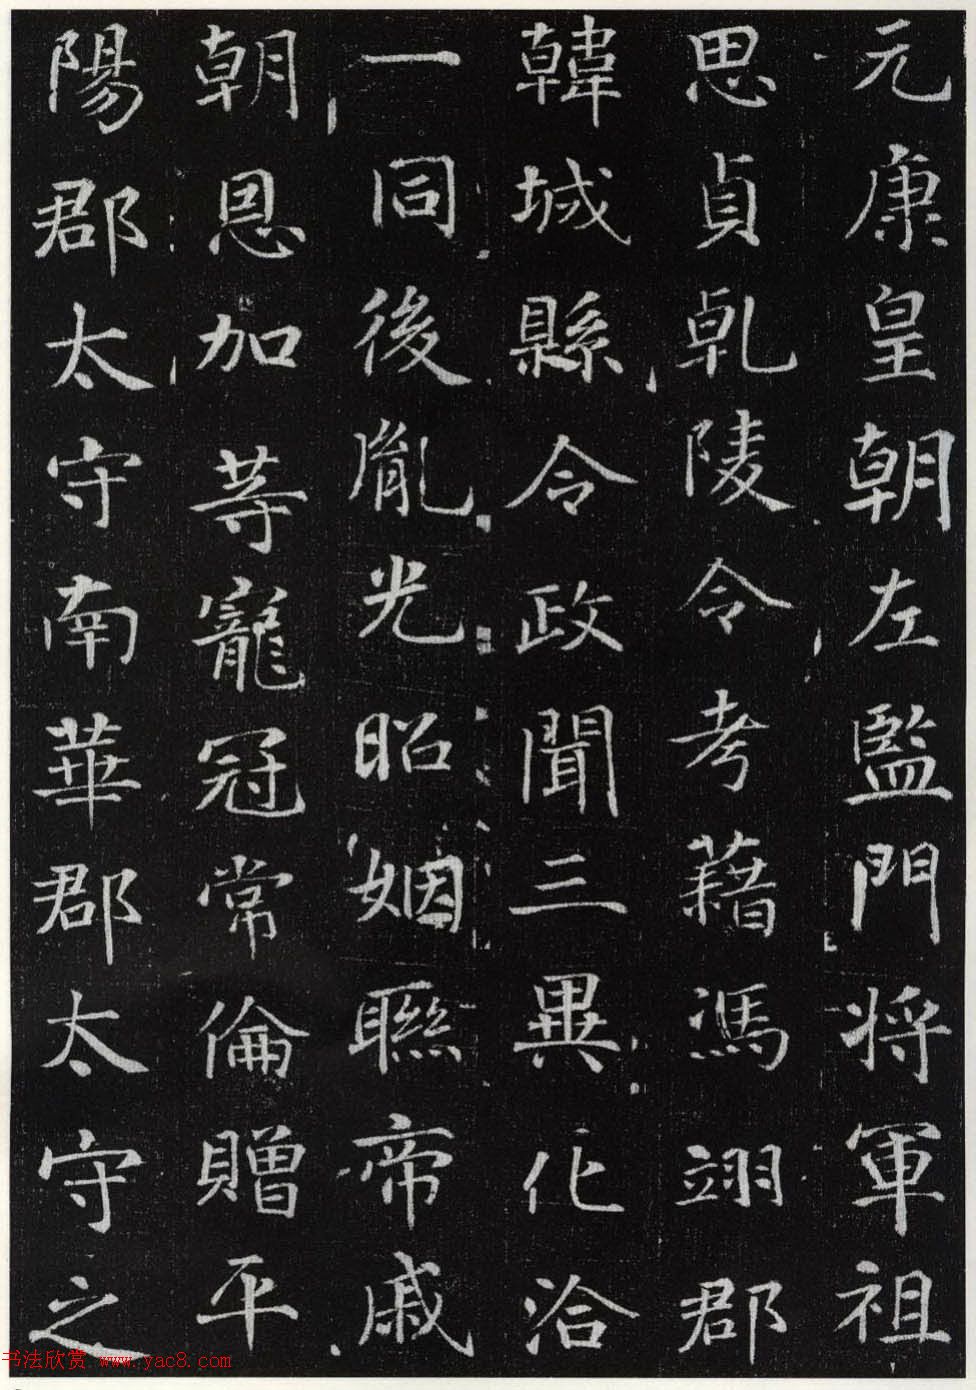 元康皇朝左監門将軍祖
思貞乹陵令考藉馮翊郡
韓城縣令政聞三異化洽
一同後胤光昭姻聮帝戚
朝恩加等寵冠常倫贈平
陽郡太守南華郡太守之
书法欣赏 www.yac8.com